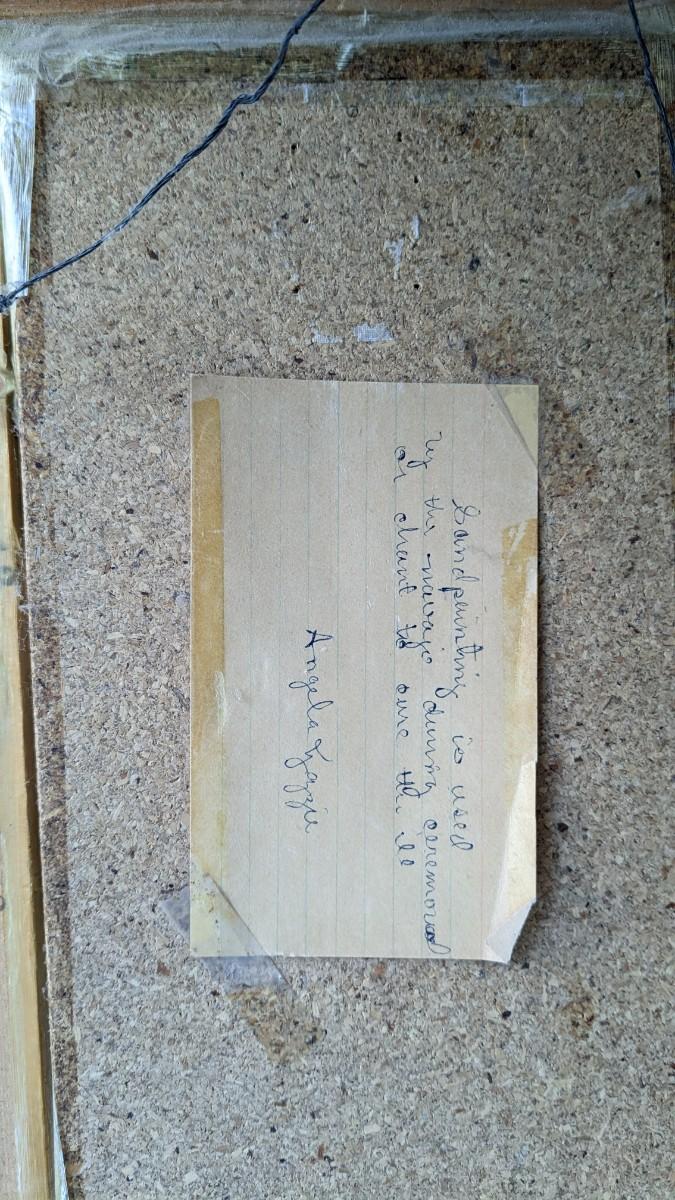 Sandpainting is used
by the navajo during ceremonial
or chant to cure the ill
Angela